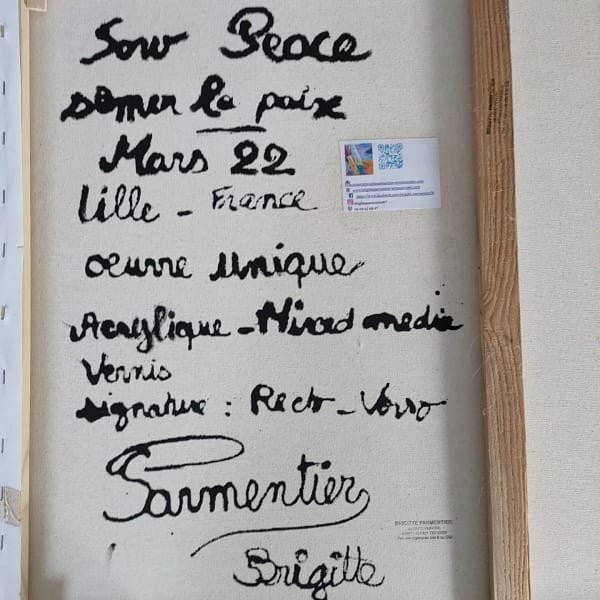 Sow Peace
semer la paix
Mars 22
Lille - France
oeuvre unique
Acrylique - Mixed media
Vernis
signature : Recto - Verso
Parmentier
Brigitte
BRIGITTE PARMENTIER